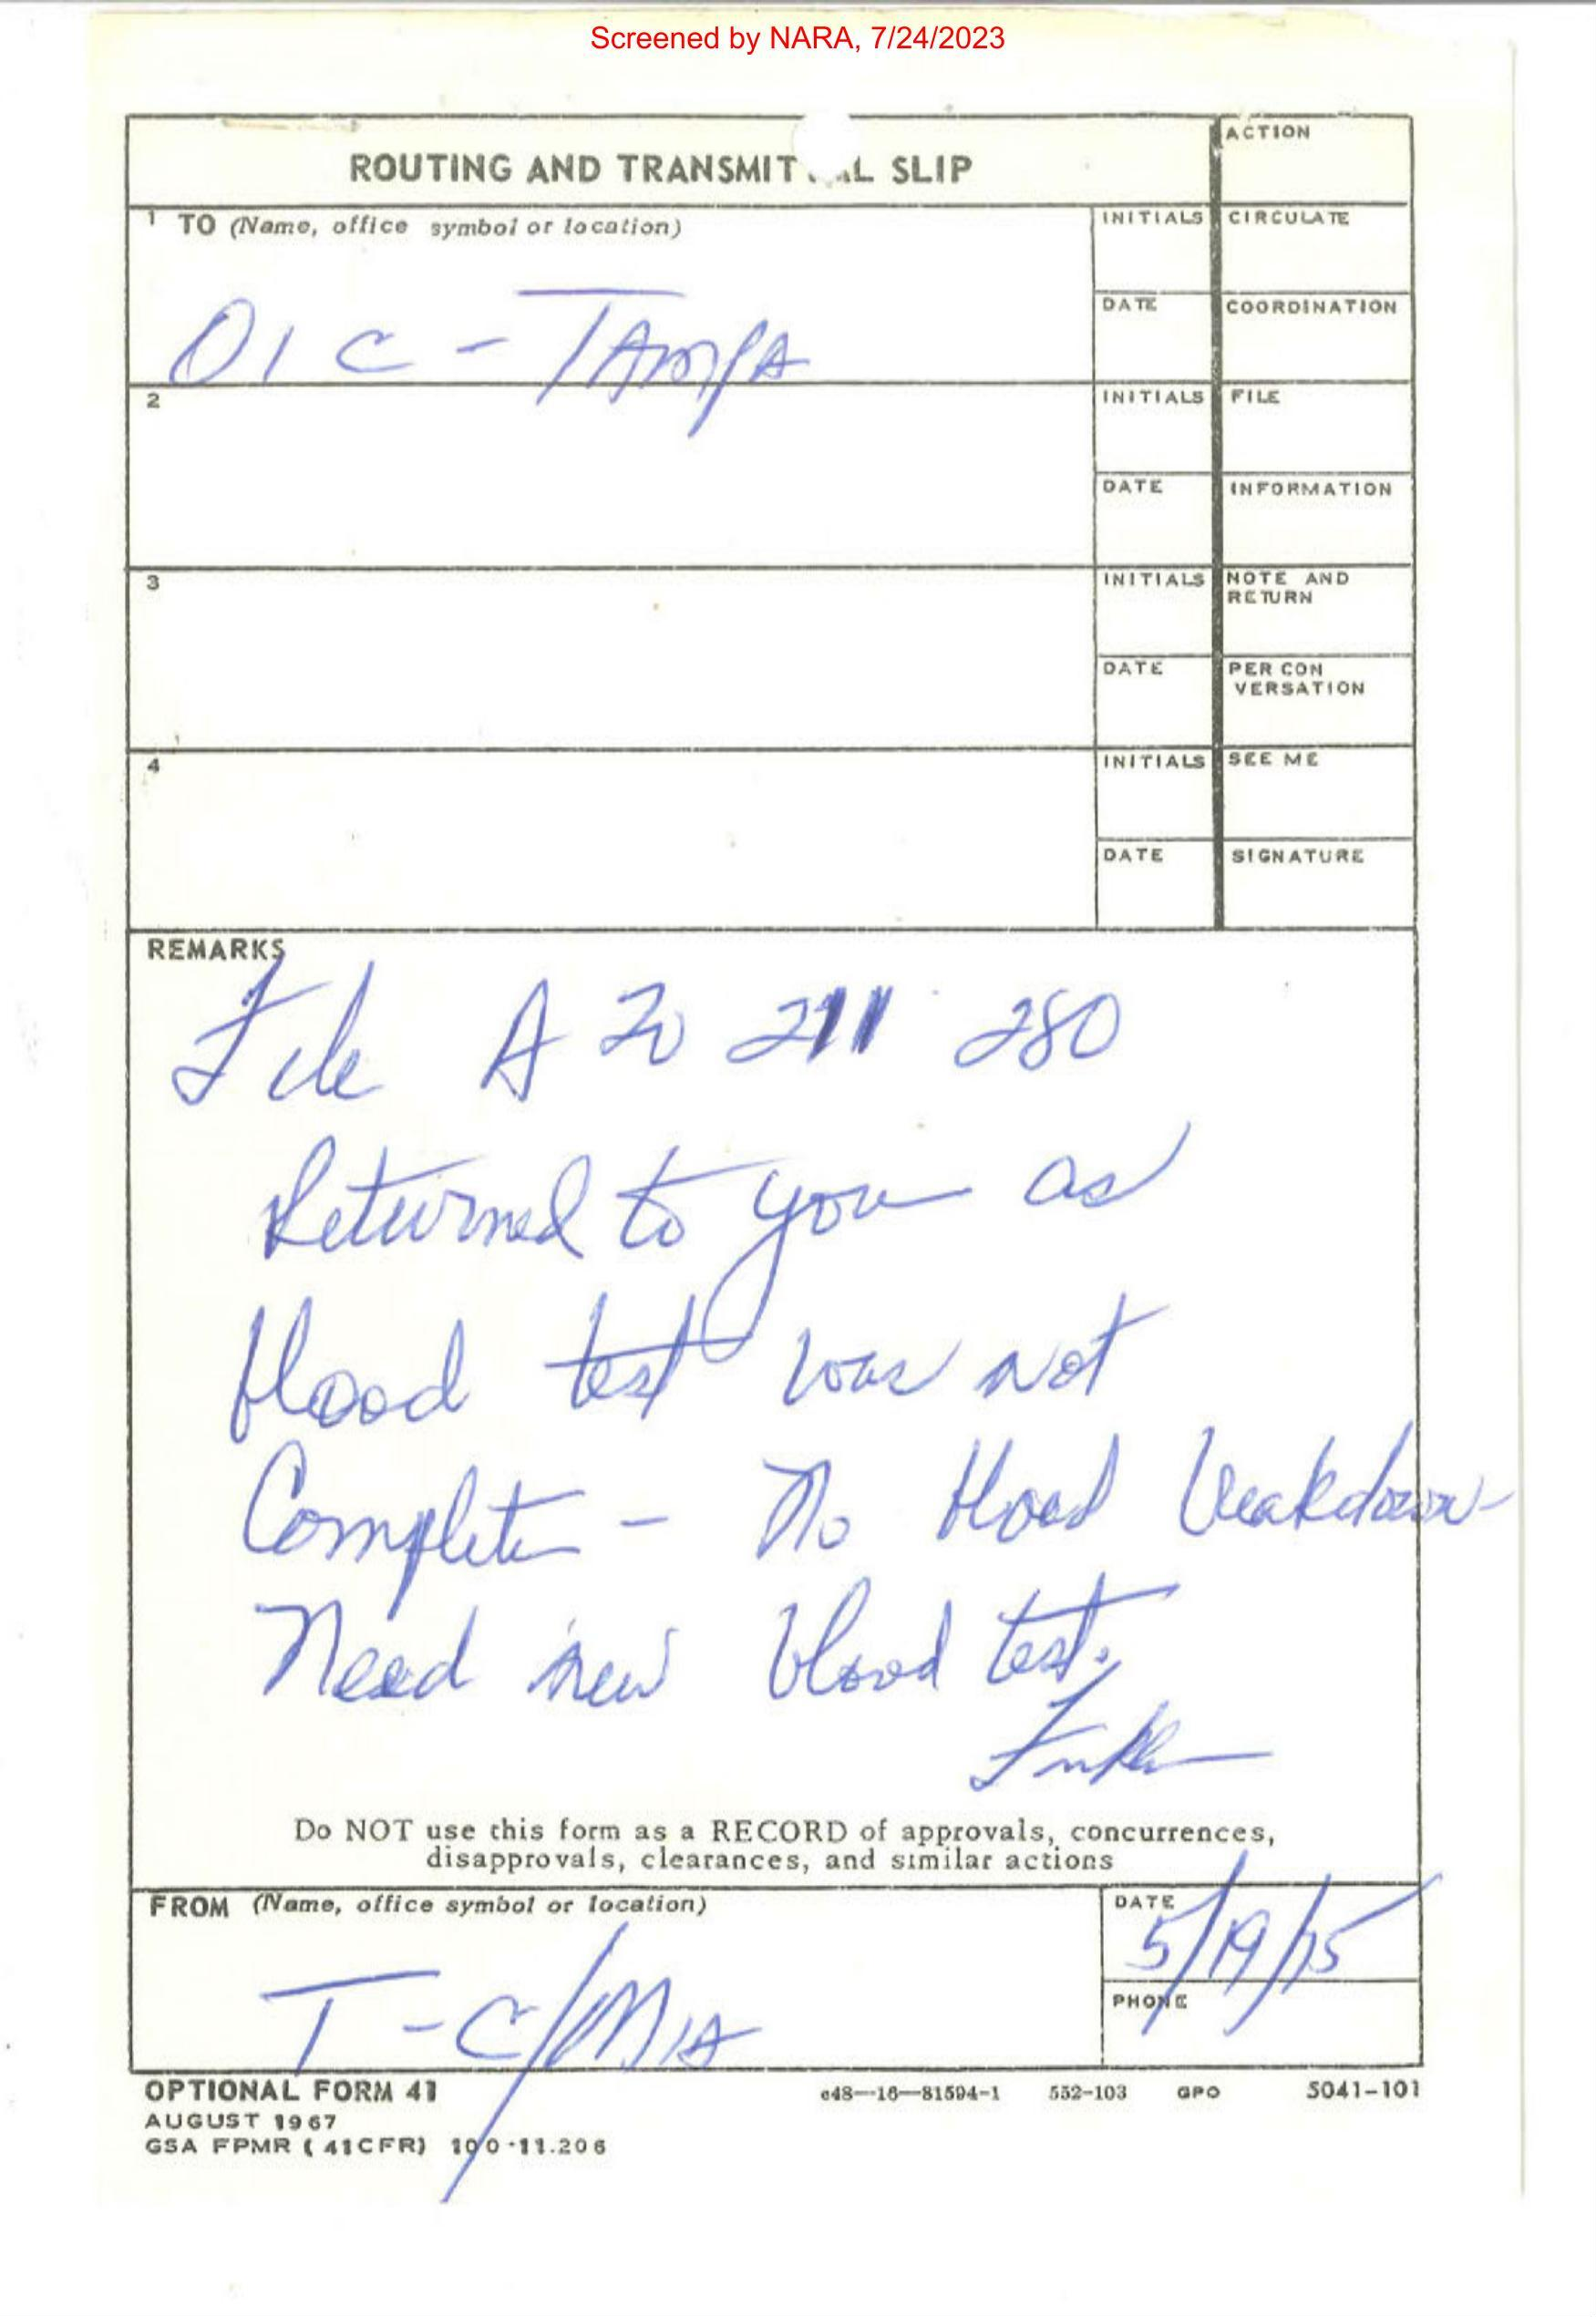 Screened by NARA, 7/24/2023
ROUTING AND TRANSMIT AL SLIP
ACTION
1 TO (Name, office symbol or location)
INITIALS
CIRCULATE
OIC - TAMPA
DATE
COORDINATION
2
INITIALS
FILE
DATE
INFORMATION
3
INITIALS
NOTE AND
RETURN
DATE
PER CON
VERSATION
4
INITIALS
SEE ME
DATE
SIGNATURE
REMARKS
File A 20 211 280
Returned to you as
blood test was not
Complete - No blood breakdown -
Need new blood test.
Do NOT use this form as a RECORD of approvals, concurrences,
disapprovals, clearances, and similar actions
FROM (Name, office symbol or location)
DATE
5/19/75
T-C/MIA
PHONE
OPTIONAL FORM 41
c48—16—81594-1 552-103 GPO 5041-101
AUGUST 1967
GSA FPMR (41CFR) 100-11.206